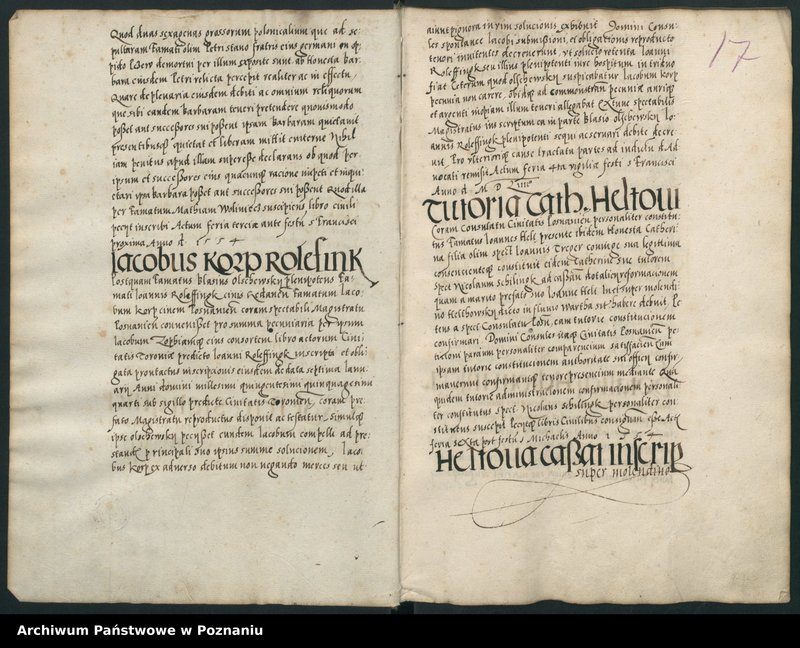 Quod duas sexagenas grossorum polonicalium que ad se-
pulturam famati olim Petri stano fratris eius germani in op-
pido demortui per illum exposite sunt ab Honesta Bar-
bara eiusdem Petri relicta percepit realiter ac in effectu
Quare de plenaria eiusdem debiti ac omnium reliquorum
que sibi eandem Barbaram teneri pretendere quouismodo
posset aut successores sui possent ipsam Barbaram quietauit
presentibusque quietat et liberam mittit euiterne Nihil
iam penitus apud illam superesse declarans ob quod per
ipsum et successores eius quacunque racione impeti et inqui-
etari ipsa Barbara posset aut successores sui possent Quod illa
per famatum Mathiam suscipiens libro ciuili
pecijt inscribi Actum feria tercia ante festum S Francisci
proxima Anno d 1554
Jacobus Korp Rolefink
Postquam famatus Blasius Olschewsky plenipotens fa-
mati Joannis Roleffingk ciuis famatum Jaco-
bum Korp ciuem Posnaniensem coram spectabili Magistratu
Posnaniensi conuenisset pro summa pecuniaria per ipsum
Jacobum eius consortem libro actorum Ciui-
tatis predicto Joanni Roleffingk inscripta et obli-
gata prout actus inscripcionis eiusdem de data septima Janu-
arij Anni domini millesimi quingentesimi quinquagesimi
quarti sub sigillo predicte Ciuitatis coram pre-
fato Magistratu reproductus disponit ac testatur, simulque
ipse olschewsky pecijsset eundem Jacobum compelli ad pre-
standam principali suo ipsius summe solucionem, Jaco-
bus Korp ex aduerso debitum non negando merces seu ut
17
aiunt pignora in vim solucionis exhibuit Domini Consu-
les spontanee Jacobi submissioni, et obligacionis reproducto
tenori innitentes decreuerunt, vt solucio retenta Joanni
Roleffingk seu illius plenipotenti iure hospitum in triduo
fiat Ceterum quod olschewsky suspicabatur Jacobum Korp
pecunia non carere, obidque ad commonstrandam pecuniam aurique
et argenti inopiam illum teneri allegabat Extunc spectabilis
Magistratus inscriptum ea in parte blasio olschewsky Jo-
annis Roleffingk plenipotenti sequi ac seruari debite decre-
uit. Pro vlteriorique cause tractatu partes ad indultum d. Ad
uocati remisit Actum feria 4ta vigilia festi S Francisci
Anno d M D Liiii
Tutoria Cath. Heltowi
Coram Consulatu Ciuitatis Posnaniensis personaliter constitu-
tus famatus Joannes Helt presente ibidem Honesta Catheri-
na filia olim spect Joannis Treper coniuge sua legittima
consencienteque constituit eidem Catherine sue tutorem
spect Nicolaum schilingk ad cassandam dotalicij reformacionem
quam a marito prefato suo Joanne Helt super molendi-
no Heltowsky dicto in fluuio Wartha sit habere debuit. Pe-
tens a spect Consulatu eam tutorie constitucionem
confirmari. Domini Consules itaque Ciuitatis Posnaniensis pe-
ticioni parcium personaliter comparencium satisfacientes Eam
ipsam tutorie constitucionem authoritate sui officij confir-
mauerunt confirmantque tenore presencium mediante Qua
quidem tutorie administracionem confirmacionem personali-
ter constitutus spect. Nicolaus schilingk personaliter con-
stitutus suscepit pecijtque libris Ciuilibus consignari esse Act
feria sexta post festum S Michaelis Anno 1554
Heltowa cassat inscrip
super molendino
Archiwum Państwowe w Poznaniu